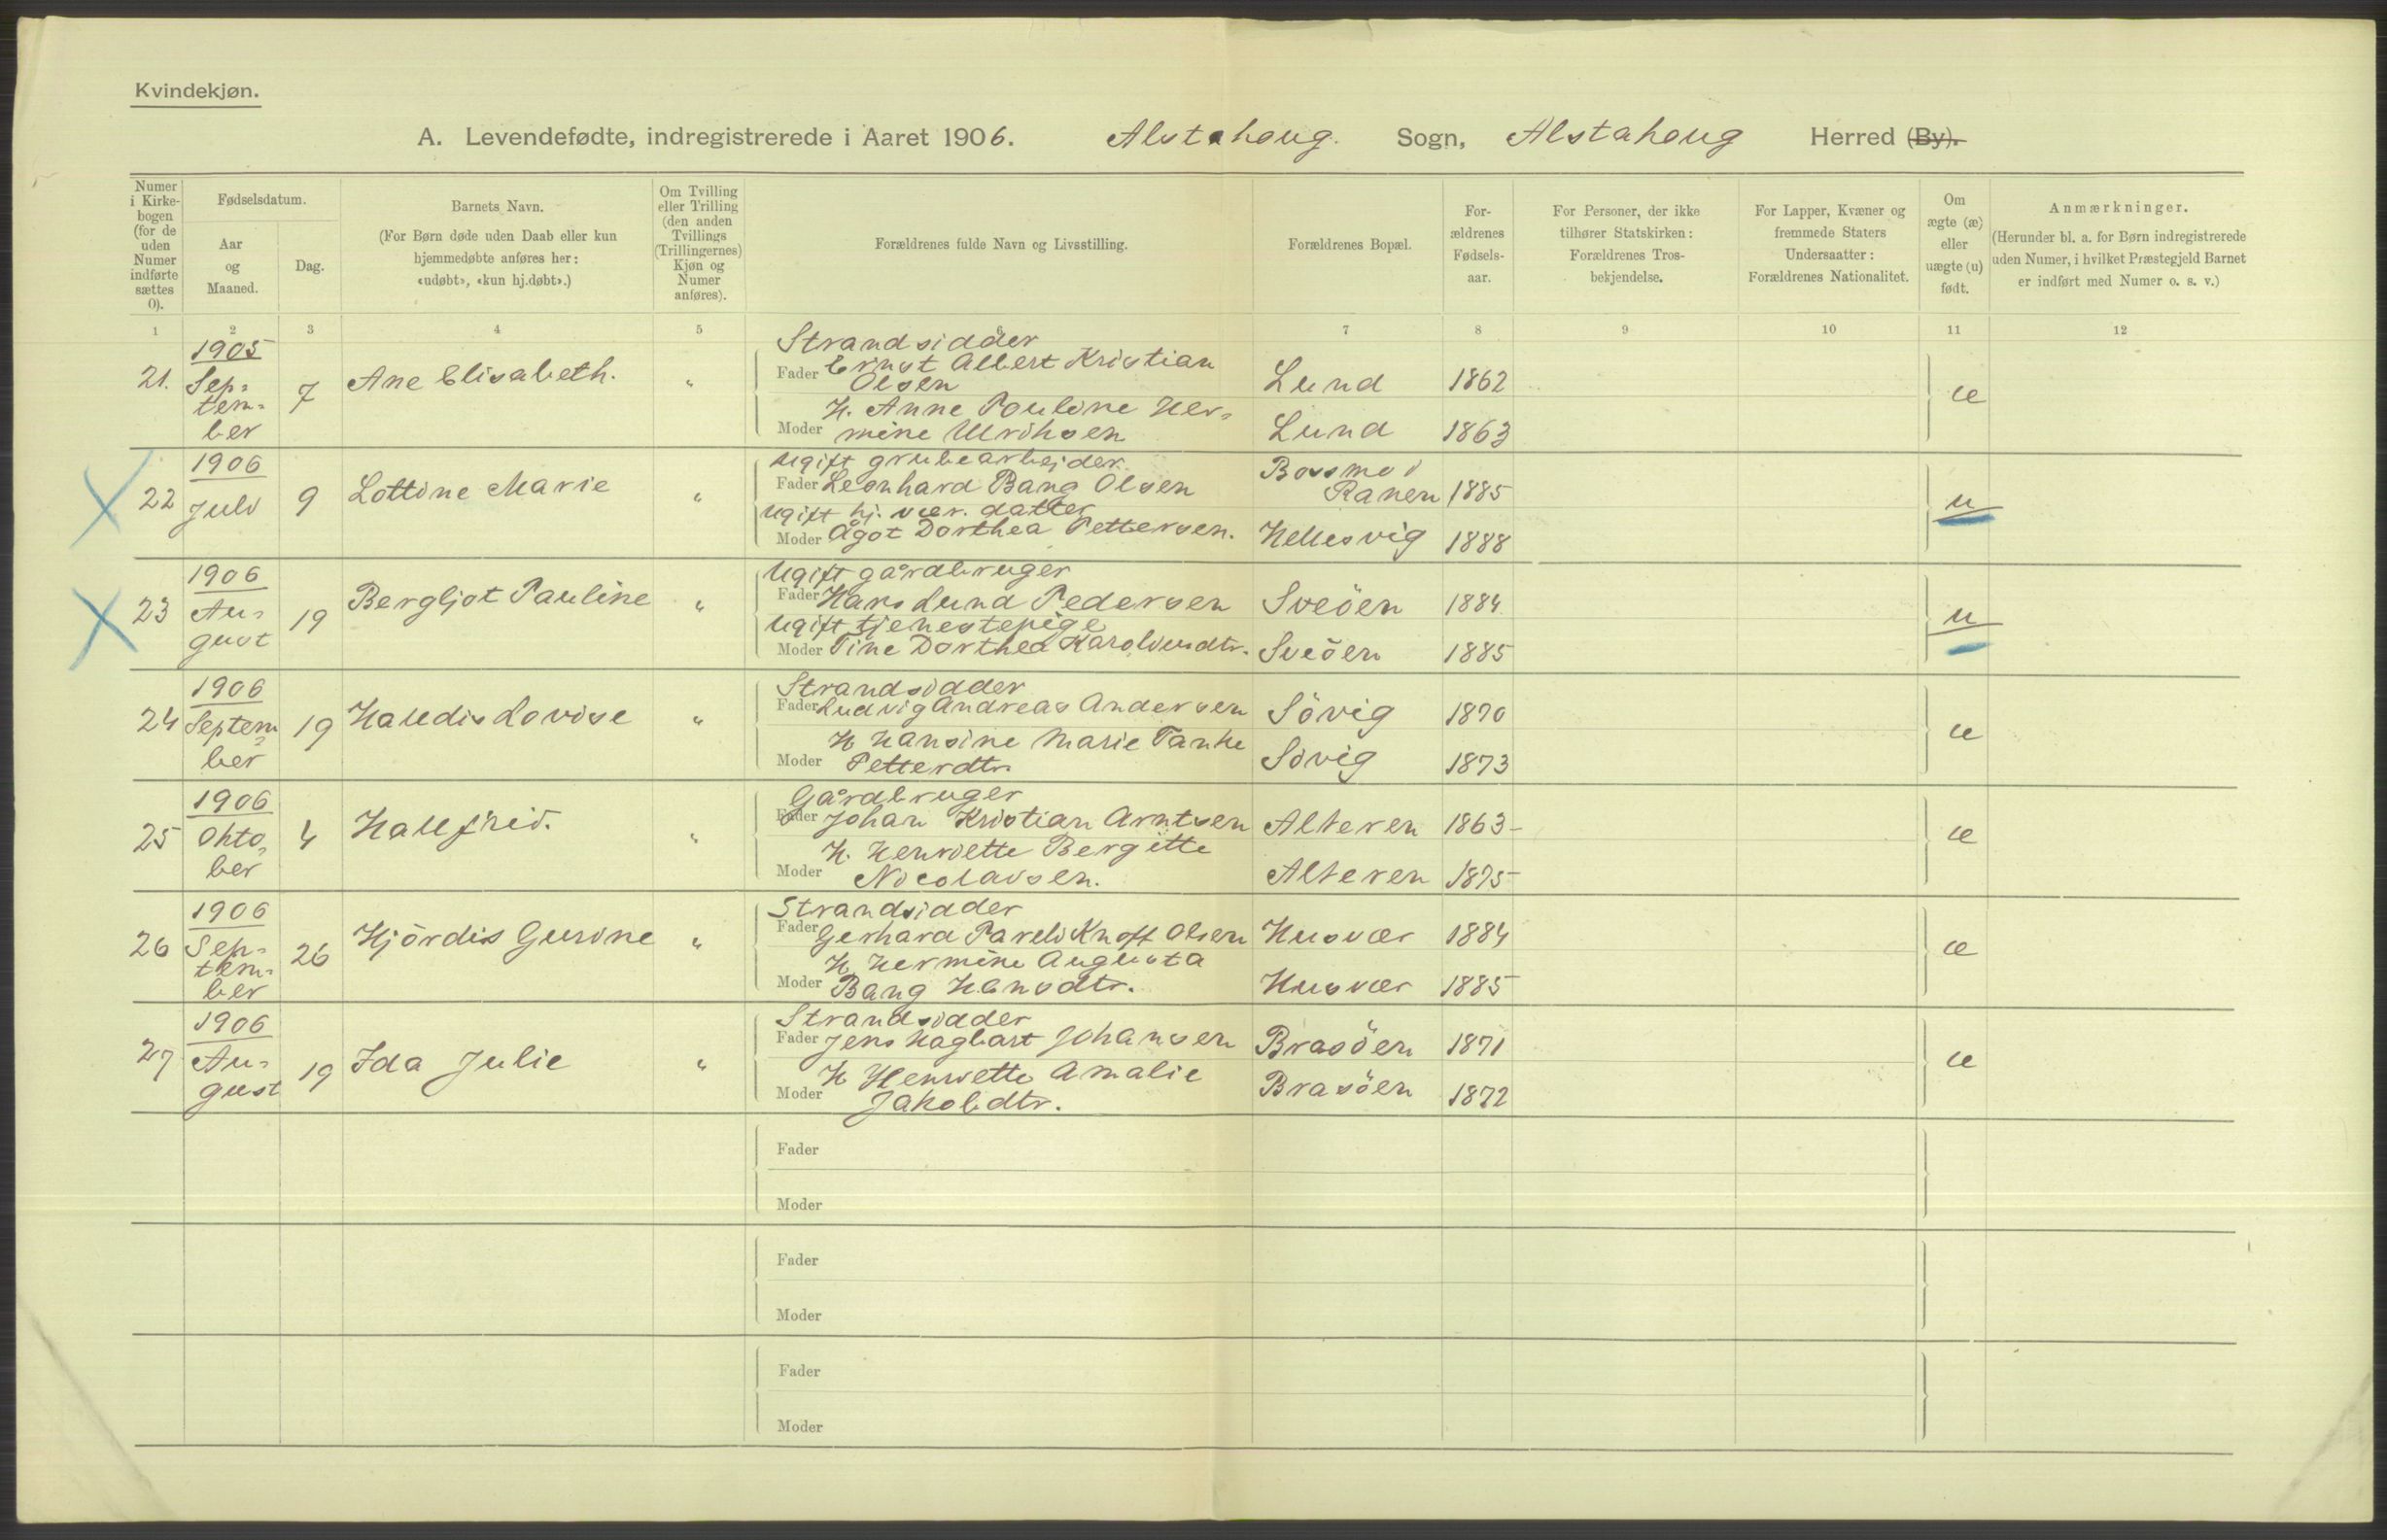 Kvindekjøn.
A. Levendefødte, indregistrerede i Aaret 1906. Alstahoug. Sogn, Alstahoug Herred (By).
Numer i Kirkebogen (for de uden Numer indførte sættes 0).
Fødselsdatum.
Aar og Maaned.
Dag.
Barnets Navn.
(For Børn døde uden Daab eller kun hjemmedøbte anføres her: «udøbt», «kun hj.døbt».)
Om Tvilling eller Trilling (den anden Tvillings (Trillingernes) Kjøn og Numer anføres).
Forældrenes fulde Navn og Livsstilling.
Forældrenes Bopæl.
Forældrenes Fødselsaar.
For Personer, der ikke tilhører Statskirken: Forældrenes Trosbekjendelse.
For Lapper, Kvæner og fremmede Staters Undersaatter: Forældrenes Nationalitet.
Om ægte (æ) eller uægte (u) født.
Anmærkninger.
(Herunder bl. a. for Børn indregistrerede uden Numer, i hvilket Præstegjeld Barnet er indført med Numer o. s. v.)
1 2 3 4 5 6 7 8 9 10 11 12
21. 1905 Sep=tem=ber 7 Ane Elisabeth. "
Strandsidder
Fader Ernst Albert Kristian Olsen Lund 1862 æ
Moder H. Anne Pouline Her=mine Ulriksen Lund 1863
22 1906 Juli 9 Lottine Marie "
Ugift grubearbejder
Fader Leonhard Bang Olsen Bossmo i Ranen 1885 u
Ugift hj. vær. datter
Moder Ågot Dorthea Pettersen. Hellesvig 1888
23 1906 Au=gust 19 Bergljot Pauline "
Ugift gårdbruger
Fader Hans Lund Pedersen Sveöen 1884 u
Ugift tjenestepige
Moder Tine Dorthea Karoliusdtr. Sveöen 1885
24 1906 Septem=ber 19 Halldis Lovise "
Strandsidder
Fader Ludvig Andreas Andersen Sövig 1870 æ
Moder H Hansine Marie Tanke Petterdtr. Sövig 1873
25 1906 Okto=ber 4 Hallfrid. "
Gårdbruger
Fader Johan Kristian Arntsen Alteren 1863 æ
Moder H. Henriette Bergitte Nicolaisen. Alteren 1875
26 1906 Sep=tem=ber 26 Hjördis Gurine "
Strandsidder
Fader Gerhard Pareli Knoff Olsen Husvær 1884 æ
Moder H Hermine Augusta Bang Hansdtr. Husvær 1885
27 1906 Au=gust 19 Ida Julie "
Strandsidder
Fader Jens Hagbart Johansen Brasöen 1871 æ
Moder H Henriette Amalie Jakobdtr. Brasöen 1872
Fader
Moder
Fader
Moder
Fader
Moder